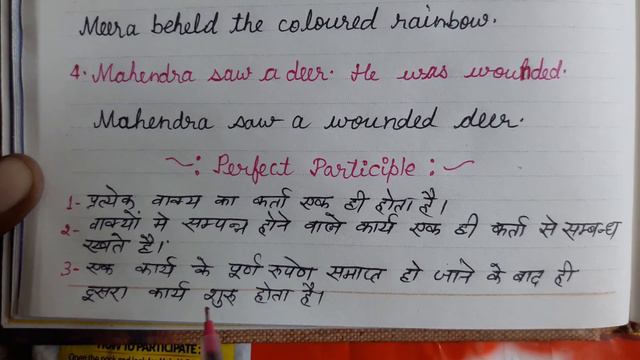 Meera beheld the coloured rainbow.
4. Mahendra saw a deer. He was wounded.
Mahendra saw a wounded deer.
~: Perfect Participle :~
1- प्रत्येक वाक्य का कर्ता एक ही होता है।
2- वाक्यों मे सम्पन्न होने वाले कार्य एक ही कर्ता से सम्बन्ध
रखते है।
3- एक कार्य के पूर्ण रुपेण समाप्त हो जाने के बाद ही
दूसरा कार्य शुरू होता है।
HOW TO PARTICIPATE: